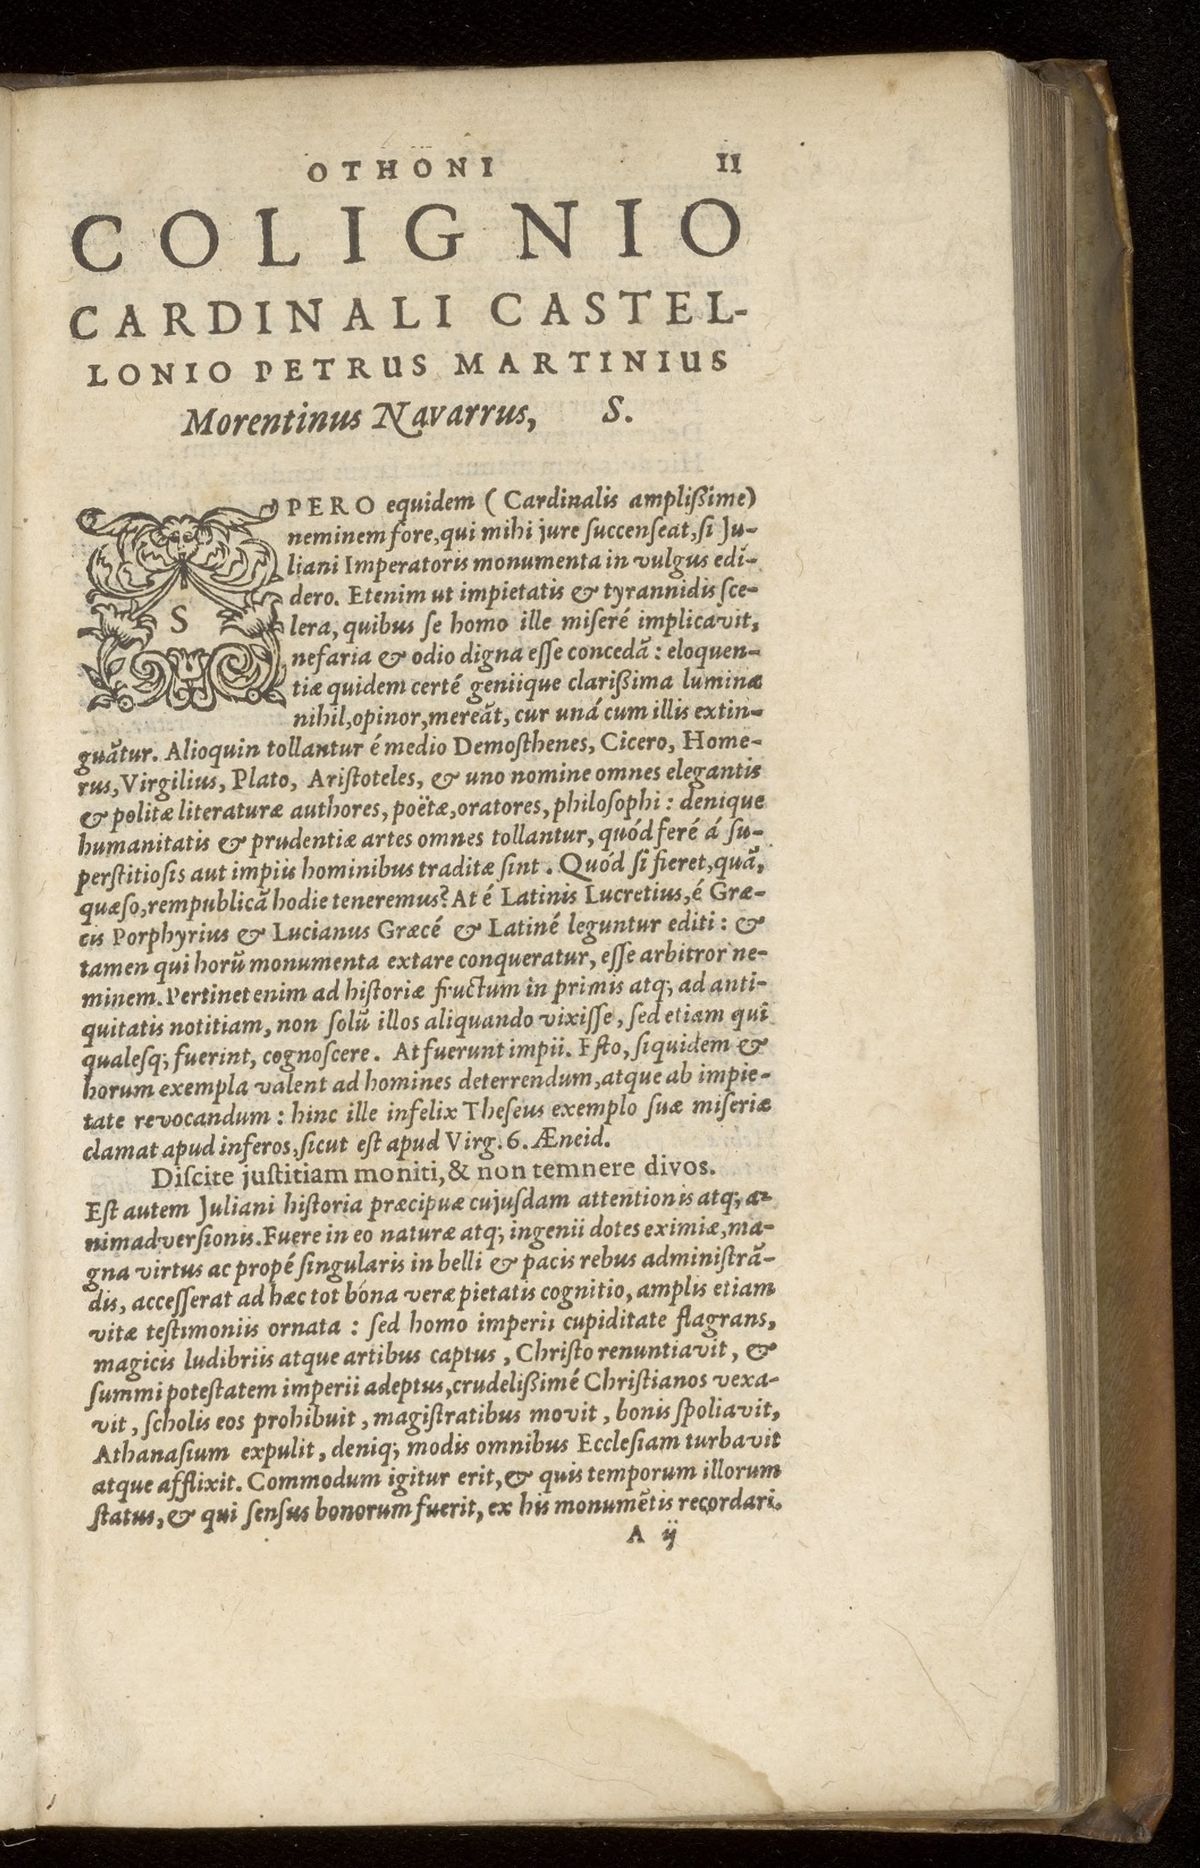 OTHONI II
COLIGNIO
CARDINALI CASTEL-
LONIO PETRUS MARTINIUS
Morentinus Navarrus, S.
SPERO equidem ( Cardinalis amplißime)
neminem fore, qui mihi jure succenseat, si Ju-
liani Imperatoris monumenta in vulgus edi-
dero. Etenim ut impietatis & tyrannidis sce-
lera, quibus se homo ille miseré implicavit,
nefaria & odio digna esse concedā : eloquen-
tiæ quidem certé geniique clarißima luminæ
nihil, opinor, mereāt, cur uná cum illis extin-
guātur. Alioquin tollantur é medio Demosthenes, Cicero, Home-
rus, Virgilius, Plato, Aristoteles, & uno nomine omnes elegantis
& politæ literaturæ authores, poëtæ, oratores, philosophi : denique
humanitatis & prudentiæ artes omnes tollantur, quód feré á su-
perstitiosis aut impiis hominibus traditæ sint. Quód si fieret, quā,
quæso, rempublicā hodie teneremus? At é Latinis Lucretius, é Græ-
cis Porphyrius & Lucianus Græcé & Latiné leguntur editi : &
tamen qui horū monumenta extare conqueratur, esse arbitror ne-
minem. Pertinet enim ad historiæ fructum in primis atq; ad anti-
quitatis notitiam, non solū illos aliquando vixisse, sed etiam qui
qualesq; fuerint, cognoscere. At fuerunt impii. Esto, siquidem &
horum exempla valent ad homines deterrendum, atque ab impie-
tate revocandum : hinc ille infelix Theseus exemplo suæ miseriæ
clamat apud inferos, sicut est apud Virg. 6. Æneid.
Discite justitiam moniti, & non temnere divos.
Est autem Juliani historia præcipuæ cujusdam attentionis atq; a-
nimadversionis. Fuere in eo naturæ atq; ingenii dotes eximiæ, ma-
gna virtus ac propé singularis in belli & pacis rebus administrā-
dis, accesserat ad hæc tot bona veræ pietatis cognitio, amplis etiam
vitæ testimoniis ornata : sed homo imperii cupiditate flagrans,
magicis ludibriis atque artibus captus, Christo renuntiavit, &
summi potestatem imperii adeptus, crudelißimé Christianos vexa-
vit, scholis eos prohibuit, magistratibus movit, bonis spoliavit,
Athanasium expulit, deniq; modis omnibus Ecclesiam turbavit
atque afflixit. Commodum igitur erit, & quis temporum illorum
status, & qui sensus bonorum fuerit, ex his monumētis recordari.
A ij